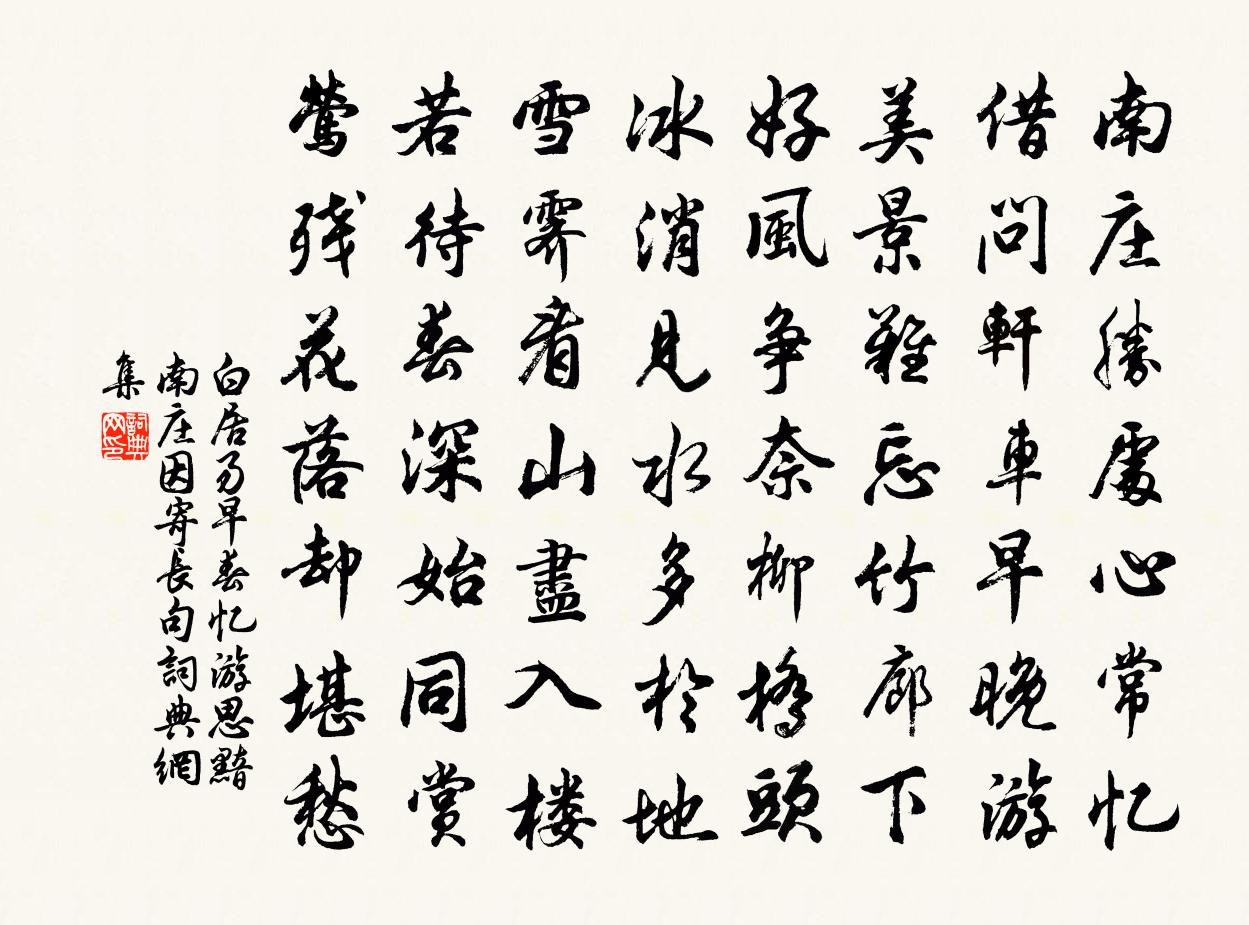 南庄勝處心常忆
借问軒車早晚游
美景難忘竹廊下
好風争奈柳橋頭
冰消见水多於地
雪霁看山盡入楼
若待春深始同赏
莺残花落却堪愁
白居易早春忆游思黯
南庄因寄长句詞典網
集
詞典网印